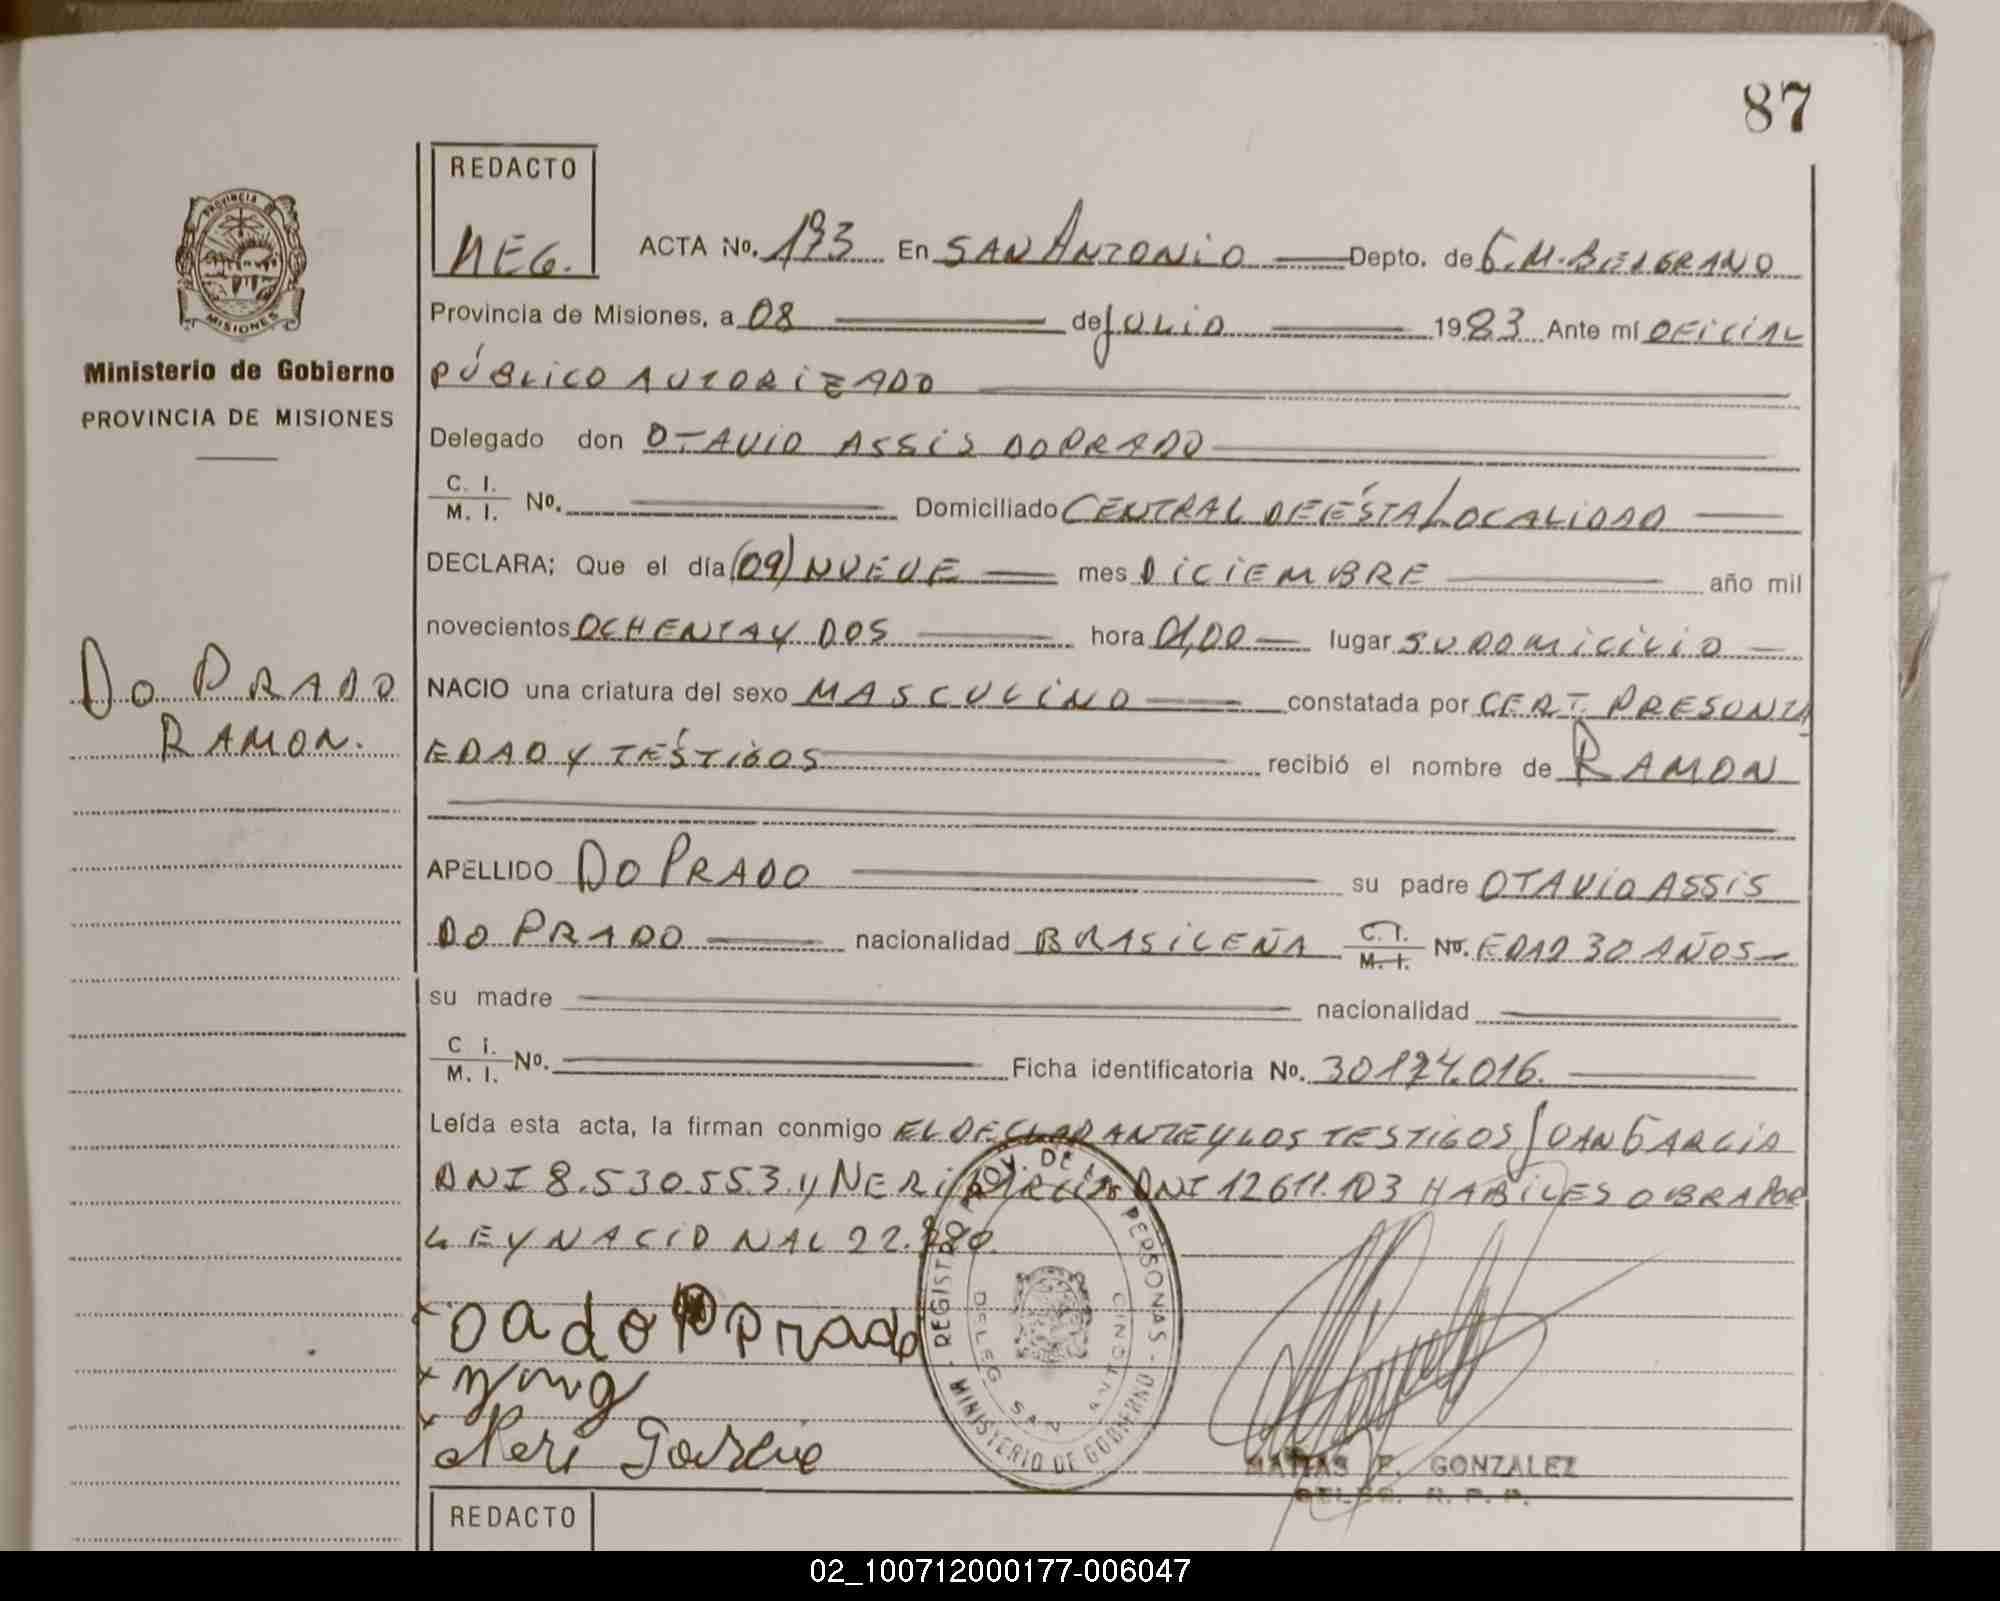 87
REDACTO
MEG.
ACTA No. 173 En SAN ANTONIO Depto. de G.M.BELGRANO
Provincia de Misiones, a 08 de JULIO 1983 Ante mí OFICIAL
PÚBLICO AUTORIZADO
Delegado don OTAVIO ASSIS DO PRADO
C. I.
M. I. No. Domiciliado CENTRAL DE ÉSTA LOCALIDAD
DECLARA; Que el día (09) NUEVE mes DICIEMBRE año mil
novecientos OCHENTA Y DOS hora 01,00 lugar SU DOMICILIO
NACIO una criatura del sexo MASCULINO constatada por CERT. PRESUNTA
EDAD Y TÉSTIGOS recibió el nombre de RAMON
APELLIDO DO PRADO su padre OTAVIO ASSIS
DO PRADO nacionalidad BRASILEÑA C. I. M. I. No. EDAD 30 AÑOS
su madre nacionalidad
C I. M. I. No. Ficha identificatoria No. 30174.016.
Leída esta acta, la firman conmigo EL DECLARANTE Y LOS TESTIGOS JUAN GARCIA
DNI 8.530.553 y NERI GARCIA DNI 12611.103 HABILES OBRA POR
LEY NACIONAL 22.
Prado
Neri Garcia
REGISTRO PROV. DE LAS PERSONAS
MINISTERIO DE GOBIERNO
DELEG SAN ANTONIO
MATIAS F. GONZALEZ
DELEG. R. P. P.
REDACTO
PROVINCIA DE
MISIONES
Ministerio de Gobierno
PROVINCIA DE MISIONES
DO PRADO
RAMON.
02_100712000177-006047